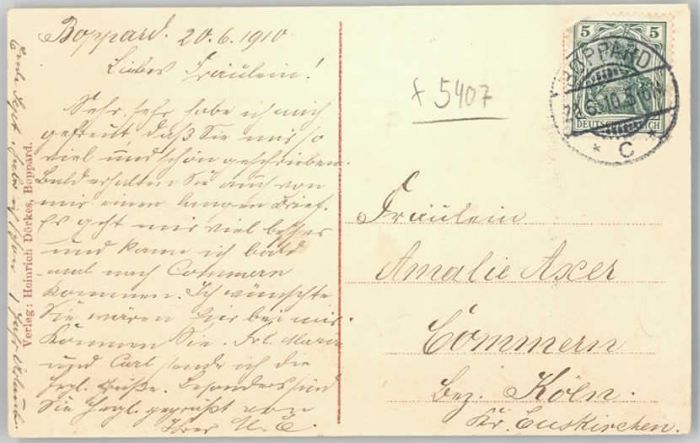 Boppard. 20.6.1910
Liebes Fräulein!
Sehr, sehr habe ich mich
gefreut daß Sie mir so
viel und schön geschrieben.
Bald erhalten Sie auch von
mir einen langen Brief.
Es geht mir viel besser
und kann ich bald
mal nach Commern
kommen. Ich wünschte
Sie wären hier bei mir.
Können Sie. Frl. Maria
und Carl, sende ich die
hrzl. Grüße. Besonders sind
Sie herzl. gegrüßt von
Ihrer
Verlag: Heinrich Dörkes, Boppard.
f 5407
5 5
DEUTSCHES REICH
BOPPARD
C
Fräulein
Amalie Axer
Commern
Bez. Köln.
Kr. Euskirchen.